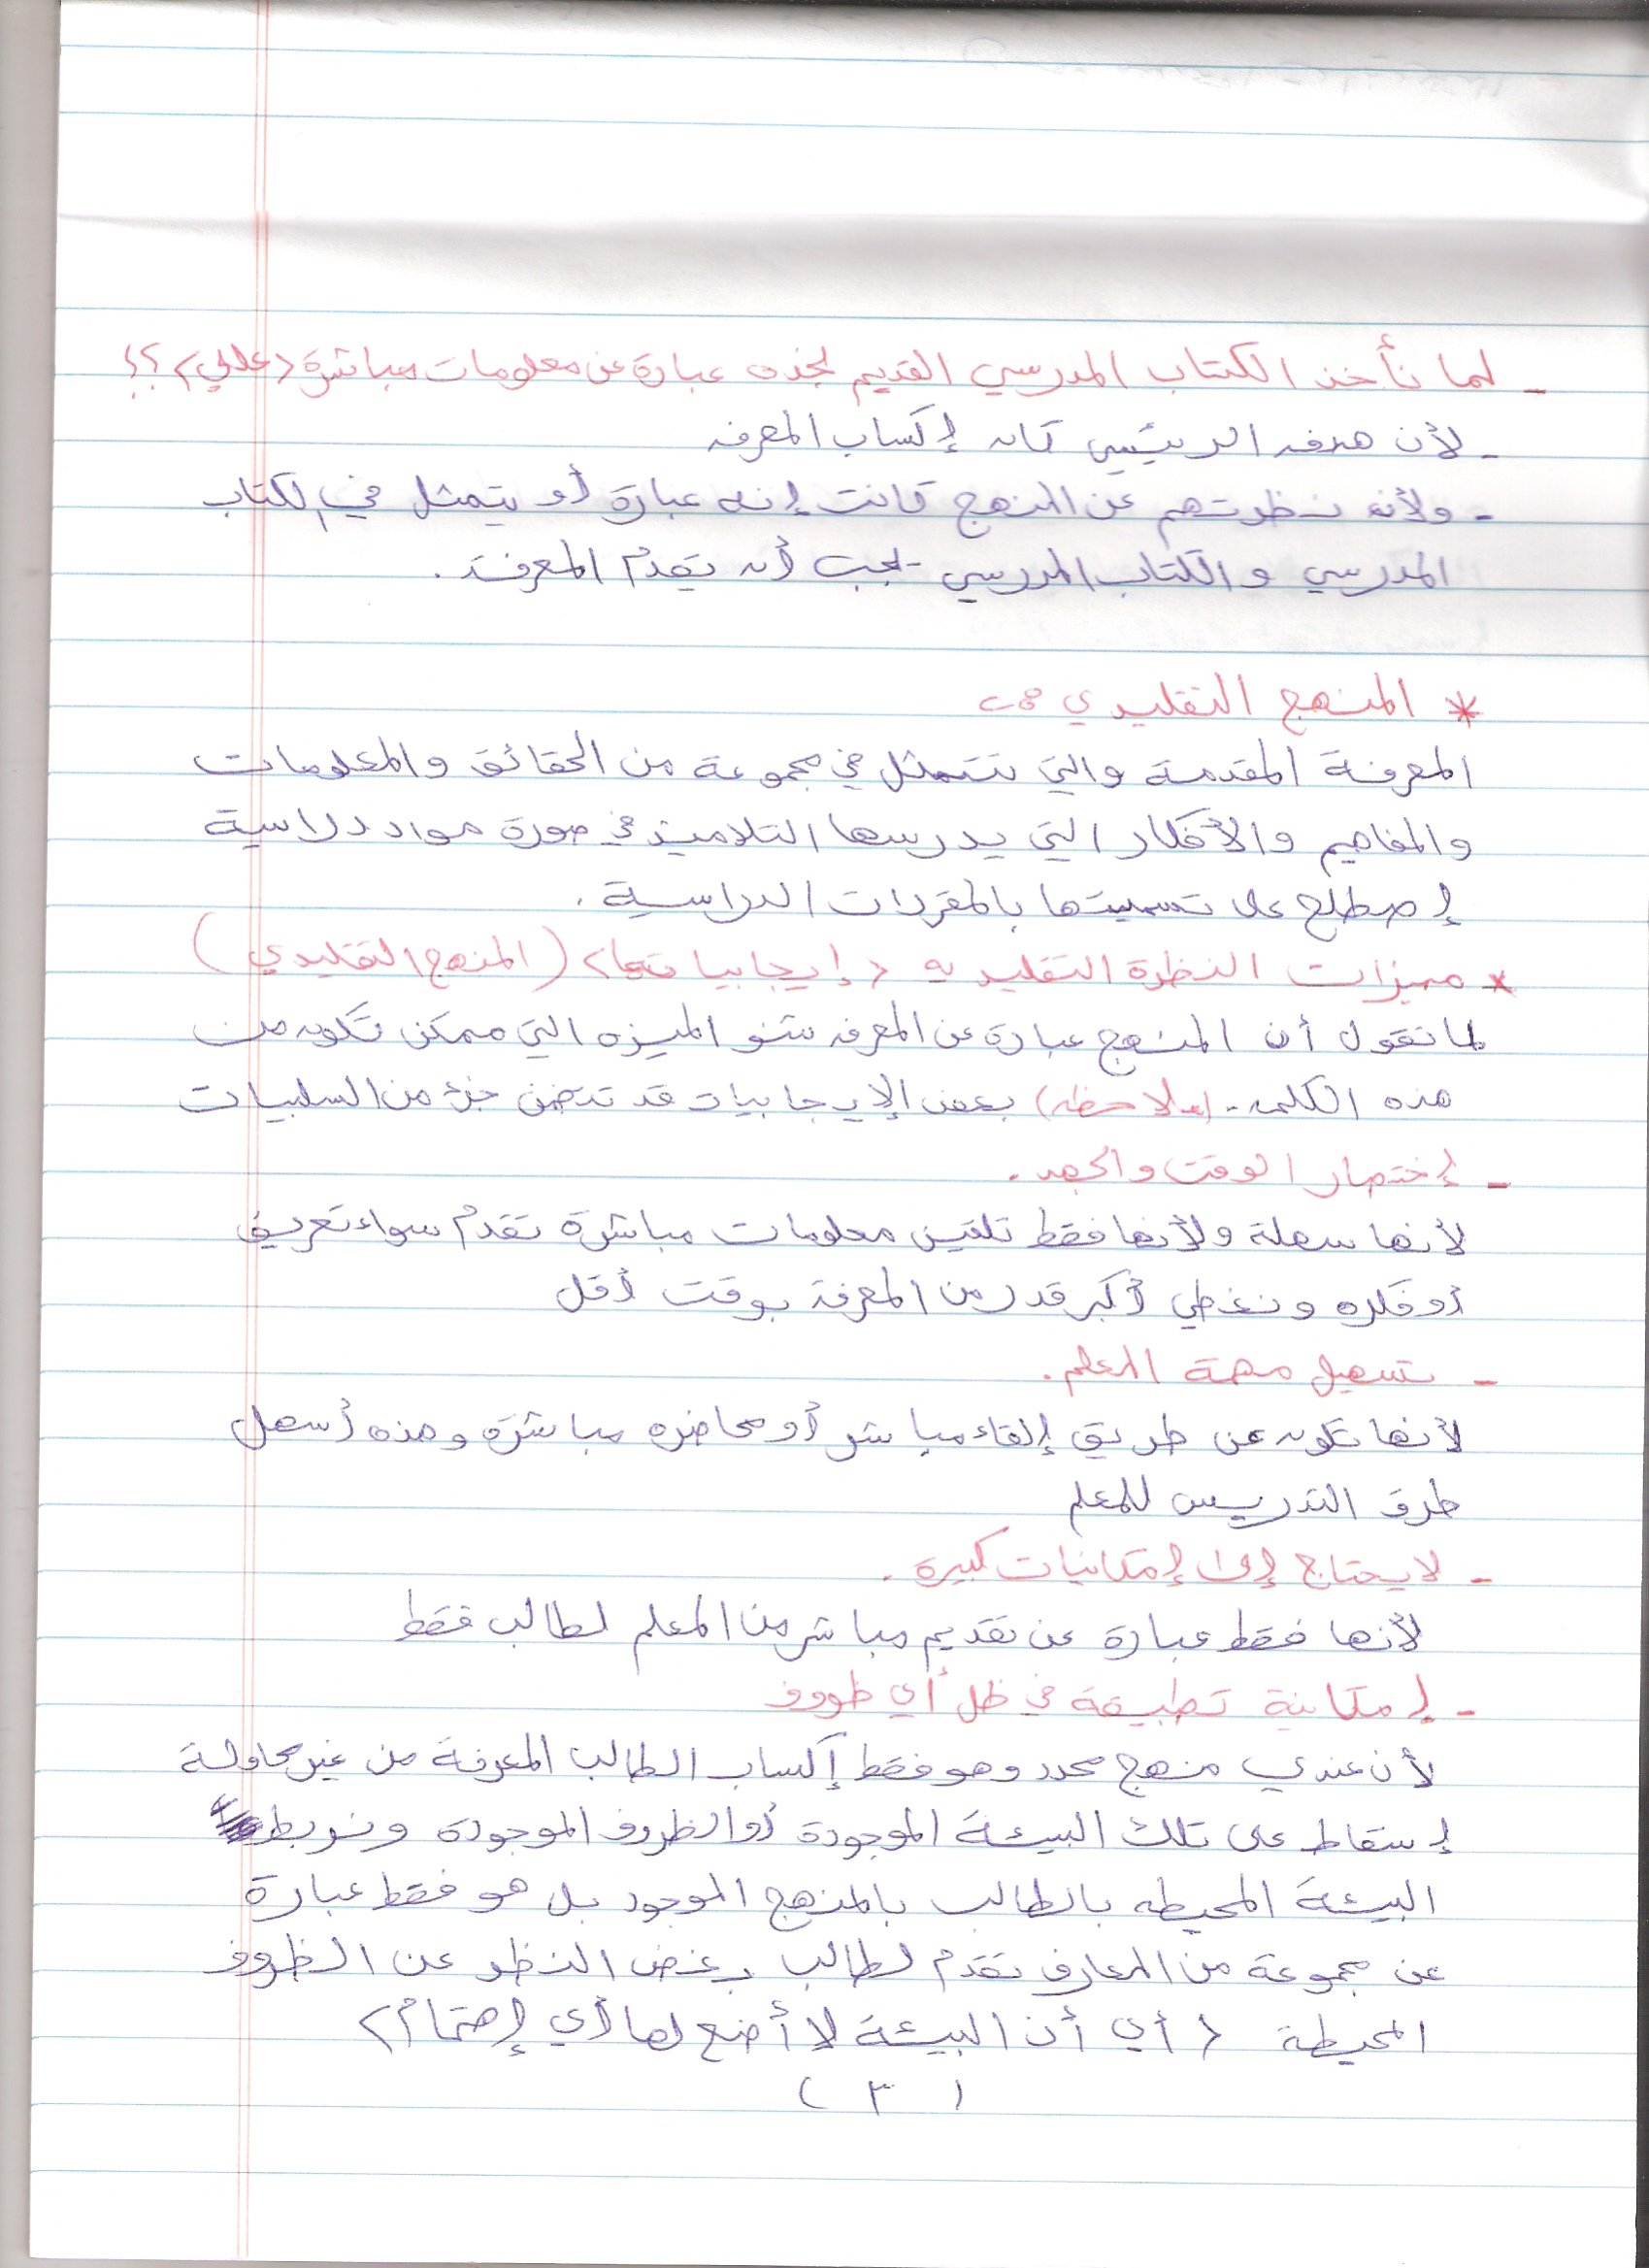 - لما نأخذ الكتاب المدرسي القديم نجده عبارة عن معلومات مباشرة <عللي> ؟؟
- لأن هدفه الرئيسي كان إكساب المعرفه
- ولأنه نظرتهم عن المنهج كانت إنه عبارة أو يتمثل في لكتاب
المدرسي والكتاب المدرسي يجب أن يقدم المعرفة .
* المنهج التقليدي :-
المعرفة المقدمة والتي تتمثل في مجموعة من الحقائق والمعلومات
والمفاهيم والأفكار التي يدرسها التلاميذ في صورة مواد دراسية
إصطلح على تسميتها بالمقررات الدراسية .
* مميزات النظرة التقليديه <إيجابياتها> (المنهج التقليدي)
لما نقول أن المنهج عبارة عن المعرفه شنو الميزه التي ممكن تكون من
هذه الكلمه . (ملاحظه) بعض الإيجابيات قد تتضمن جزء من السلبيات
- إختصار الوقت والجهد .
لأنها سهلة ولأنها فقط تلقين معلومات مباشرة تقدم سواء تعريف
أو فكره ونغطي أكبر قدر من المعرفة بوقت أقل
- تسهيل مهمة المعلم .
لأنها تكون عن طريق إلقاء مباشر أو محاضره مباشرة وهذه أسهل
طرق التدريس للمعلم
- لا يحتاج إلى إمكانيات كبيرة .
لأنها فقط عبارة عن تقديم مباشر من المعلم لطالب فقط
- إمكانية تطبيقة في ظل أي ظروف
لأن عندي منهج محدد وهو فقط إكساب الطالب المعرفة من غير محاولة
إسقاط على تلك البيئة الموجودة أو الظروف الموجودة ونربط
البيئة المحيطه بالطالب بالمنهج الموجود بل هو فقط عبارة
عن مجموعة من المعارف تقدم لطالب بغض النظر عن الظروف
المحيطة <أي أن البيئة لا أضع لها أي إهتمام>
(٣)